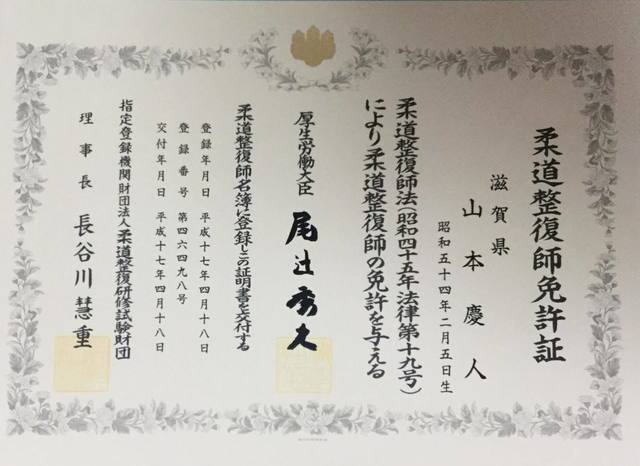 柔道整復師免許証
滋賀県
山本慶人
昭和五十四年二月五日生
柔道整復師法(昭和四十五年法律第十九号)
により柔道整復師の免許を与える
厚生労働大臣 尾辻秀久
柔道整復師名簿に登録しこの証明書を交付する
登録年月日 平成十七年四月十八日
登録番号 第四六四九八号
交付年月日 平成十七年四月十八日
指定登録機関財団法人柔道整復研修試験財団
理事長 長谷川慧重